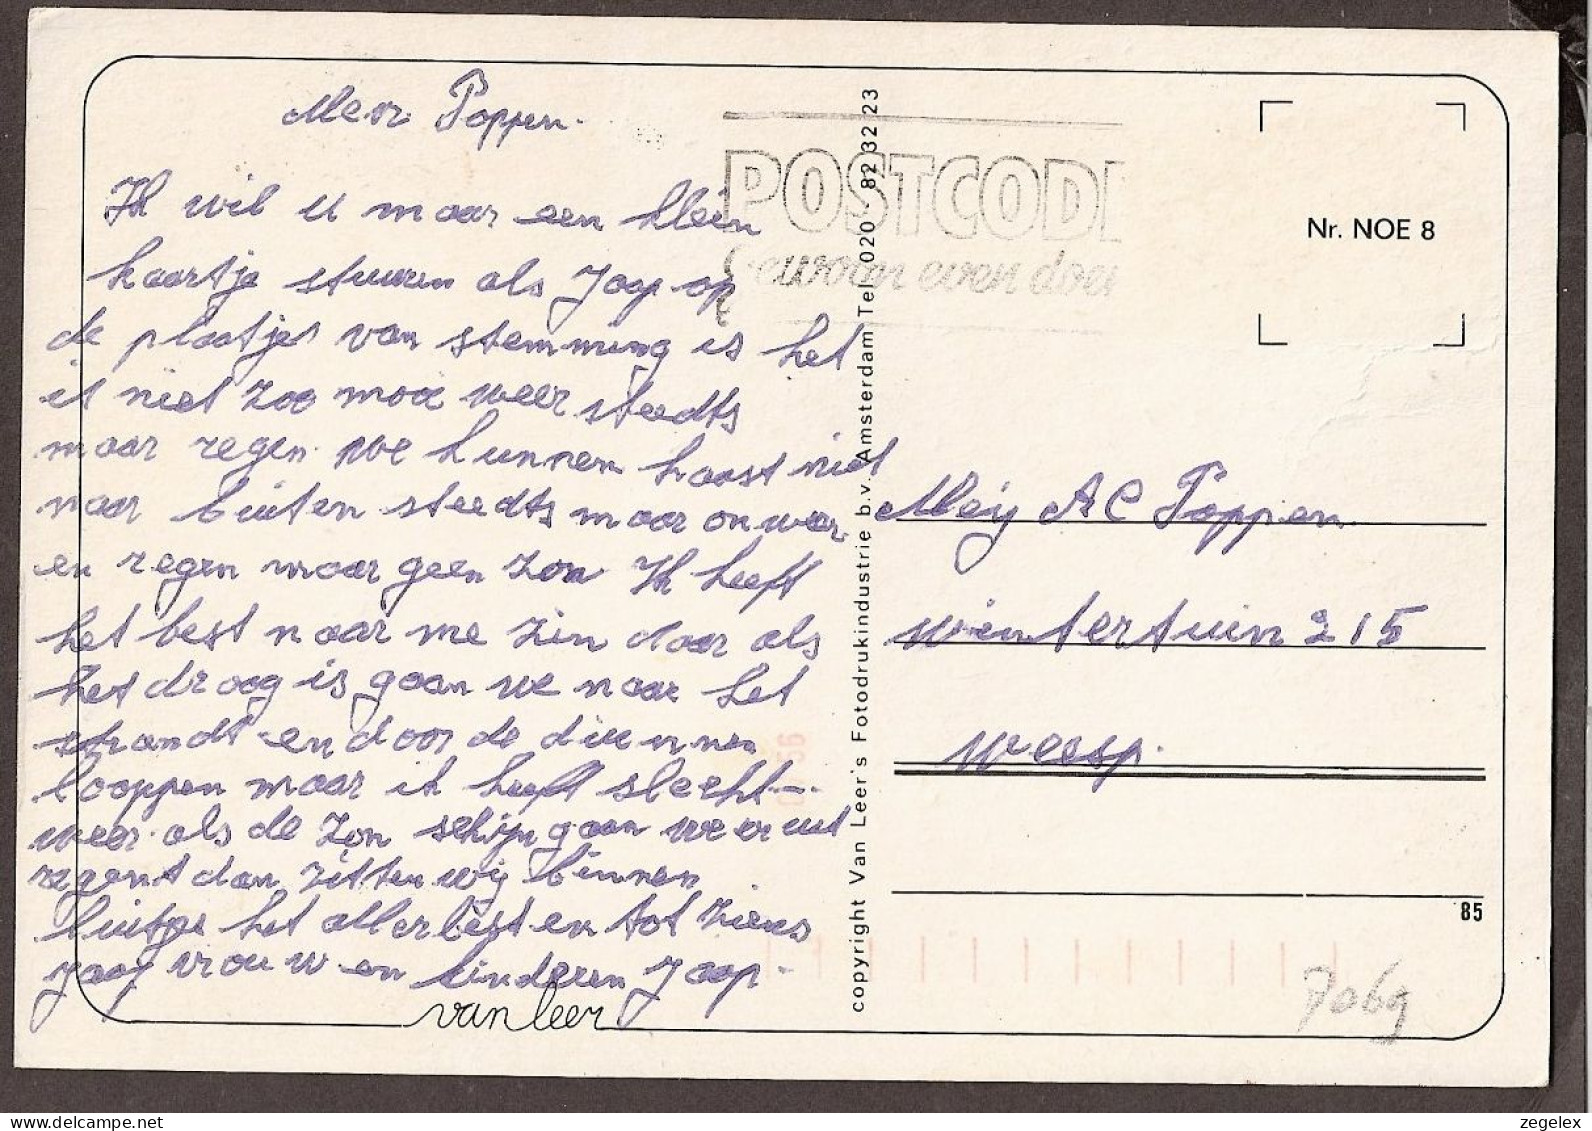 Mevr. Poppen.
Ik wil u maar een klein
kaartje sturen als Joop op
de plaatjes van stemming is het
it niet zoo mooi weer steedts
maar regen. We kunnen haast niet
naar buiten steedts maar onweer
en regen maar geen zon. Ik heeft
het best naar me zin door als
het droog is gaan we naar het
strandt en door de duinnen
looppen maar ik heeft slecht
weer. als de zon schijn gaan we er uit
regent dan zitten wij binnen
buitje het allerbest en tot ziens
Joop vrouw en kinderen Joop.
van leer
copyright Van Leer's Fotodrukindustrie b.v. Amsterdam Tel. 020 - 82 32 23
POSTCODE
gewoon even doen
Nr. NOE 8
Mej AC Poppen
wintertuin 215
weesp.
85
7069
zegelex